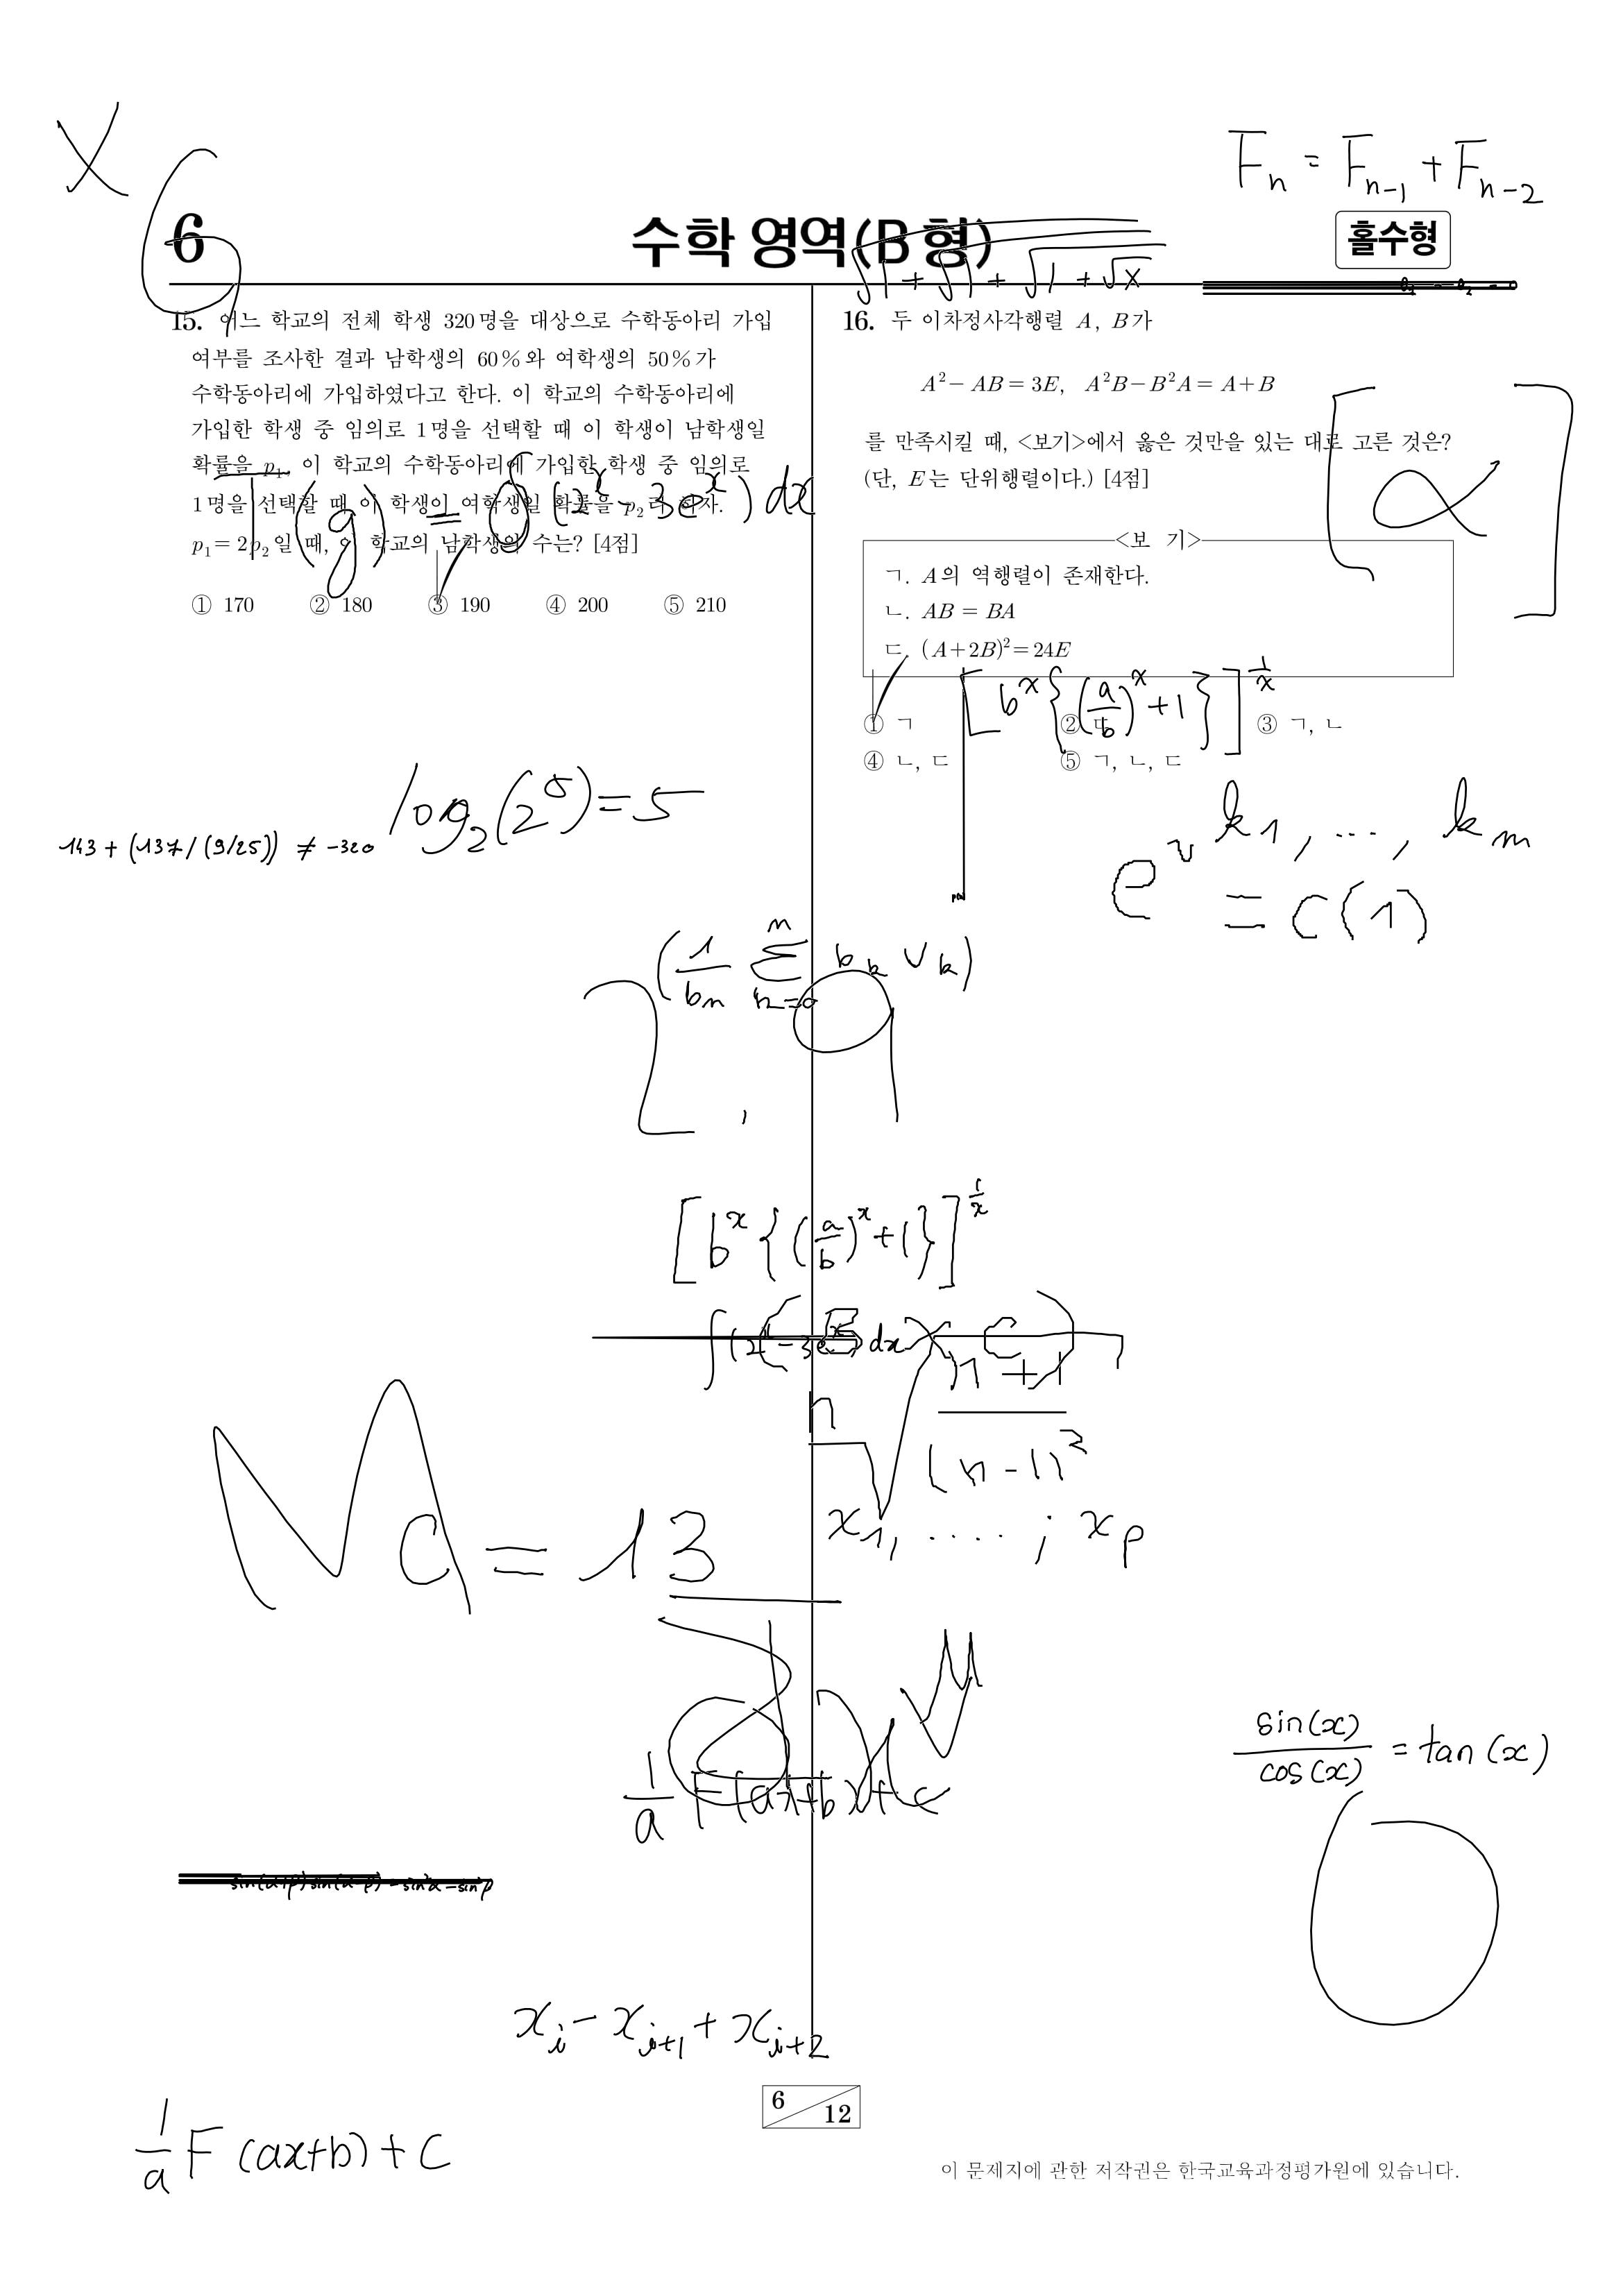 X
F_n = F_{n-1} + F_{n-2}
6
수학 영역(B형)
홀수형
√1 + √1 + √1 + √x
15. 어느 학교의 전체 학생 320명을 대상으로 수학동아리 가입
여부를 조사한 결과 남학생의 60%와 여학생의 50%가
수학동아리에 가입하였다고 한다. 이 학교의 수학동아리에
가입한 학생 중 임의로 1명을 선택할 때 이 학생이 남학생일
확률을 p₁, 이 학교의 수학동아리에 가입한 학생 중 임의로
1명을 선택할 때 이 학생이 여학생일 확률을 p₂라 하자.
p₁ = 2p₂일 때, 이 학교의 남학생의 수는? [4점]
① 170 ② 180 ③ 190 ④ 200 ⑤ 210
(2^x - 3e^x) dx
16. 두 이차정사각행렬 A, B가
A² - AB = 3E, A²B - B²A = A + B
를 만족시킬 때, <보기>에서 옳은 것만을 있는 대로 고른 것은?
(단, E는 단위행렬이다.) [4점]
[α]
<보 기>
ㄱ. A의 역행렬이 존재한다.
ㄴ. AB = BA
ㄷ. (A+2B)² = 24E
① ㄱ ② ㄷ ③ ㄱ, ㄴ
④ ㄴ, ㄷ ⑤ ㄱ, ㄴ, ㄷ
[b^x{(a/b)^x+1}]^{1/x}
log₂(2⁵) = 5
143 + (137/(9/25)) ≠ -320
k₁, ..., k_m
e^v = c(1)
(1/b_n Σ_{k=0}^{n} b_k v_k)
[b^x{(a/b)^x+1}]^{1/x}
∫(2^x - 3e^x) dx
n+1
(n-1)²
x₁, ....; x_p
a = 13
1/a F(ax+b) + c
sin(x)/cos(x) = tan(x)
sin(α+β)sin(α-β) = sin²α - sin²β
x_i - x_{i+1} + x_{i+2}
6
12
1/a F(ax+b) + C
이 문제지에 관한 저작권은 한국교육과정평가원에 있습니다.